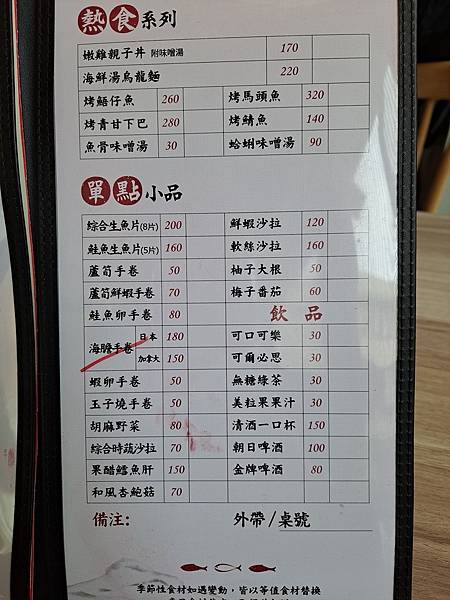 熱食系列
嫩雞親子丼 附味噌湯 170
海鮮湯烏龍麵 220
烤鯃仔魚 260 烤馬頭魚 320
烤青甘下巴 280 烤鯖魚 140
魚骨味噌湯 30 蛤蜊味噌湯 90
單點小品
綜合生魚片(8片) 200 鮮蝦沙拉 120
鮭魚生魚片(5片) 160 軟絲沙拉 160
蘆筍手卷 50 柚子大根 50
蘆筍鮮蝦手卷 70 梅子番茄 60
鮭魚卵手卷 80 飲品
海膽手卷 日本 180 可口可樂 30
加拿大 150 可爾必思 30
蝦卵手卷 50 無糖綠茶 30
玉子燒手卷 50 美粒果果汁 30
胡麻野菜 80 清酒一口杯 150
綜合時蔬沙拉 70 朝日啤酒 100
果醋鱈魚肝 150 金牌啤酒 80
和風杏鮑菇 70
備注: 外帶/桌號
季節性食材如遇變動,皆以等值食材替換